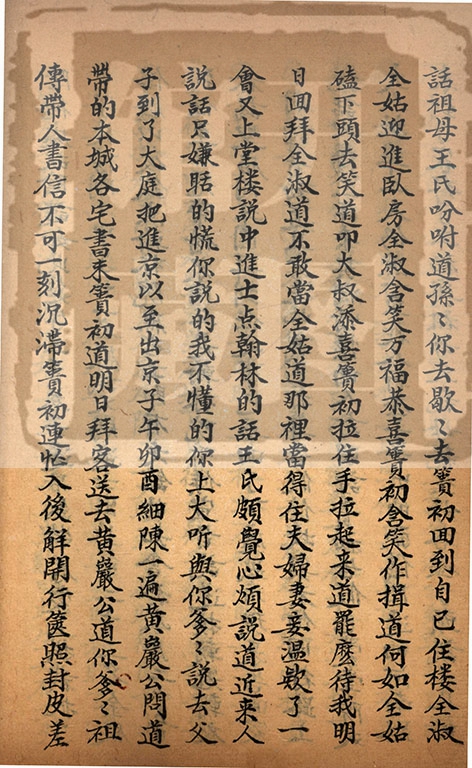 話祖母王氏吩咐道孫〻你去歇〻去簣初回到自己住楼全淑
全姑迎進臥房全淑含笑万福恭喜簣初含笑作揖道何如全姑
磕下頭去笑道叩大叔添喜簣初拉住手拉起来道罷麽待我明
日面拜全淑道不敢當全姑道那裡當得住夫婦妻妾温欵了一
會又上堂楼說中進士点翰林的話王氏頗覺心煩說道近来人
說話只嫌聒的慌你說的我不懂的你上大听與你爹〻說去父
子到了大庭把進京以至出京子午卯酉細陳一遍黄巖公問道
帶的本城各宅書来簣初道明日拜客送去黄巖公道你爹〻祖
傳帶人書信不可一刻沉滯簣初連忙入後解開行篋照封皮差